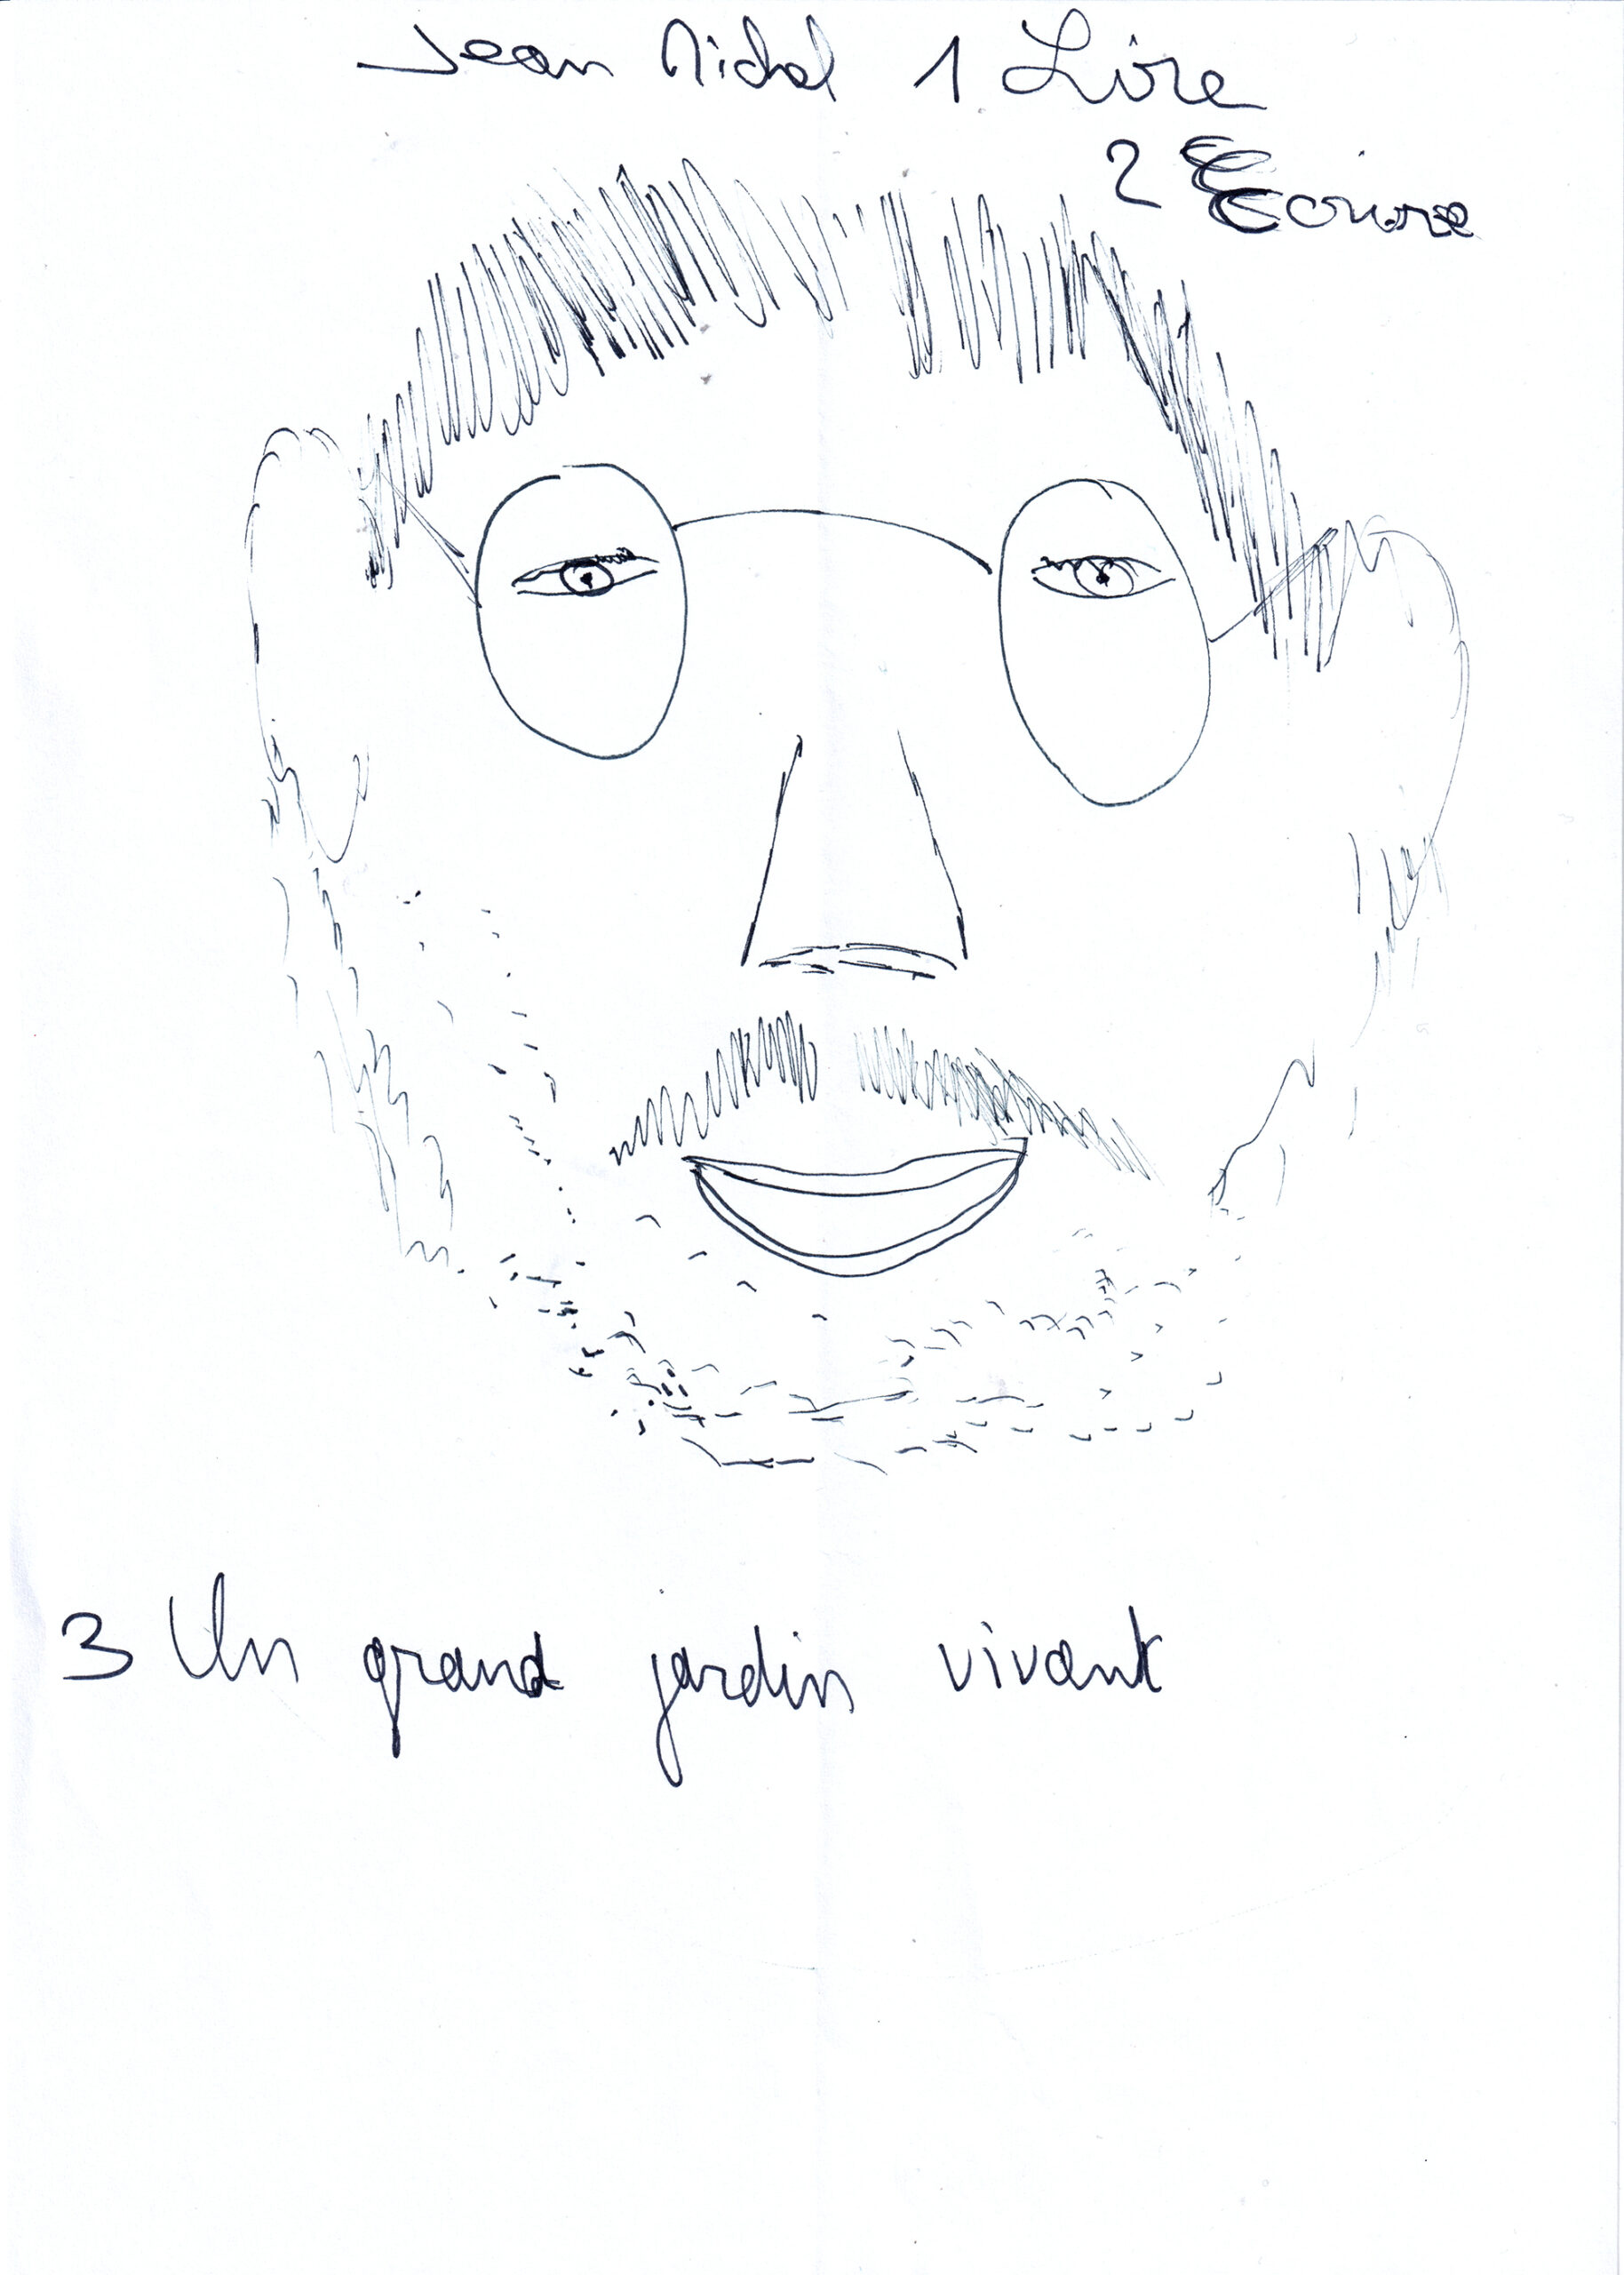 Jean Michel 1 Lire
2 Ecrire
3 Un grand jardin vivant